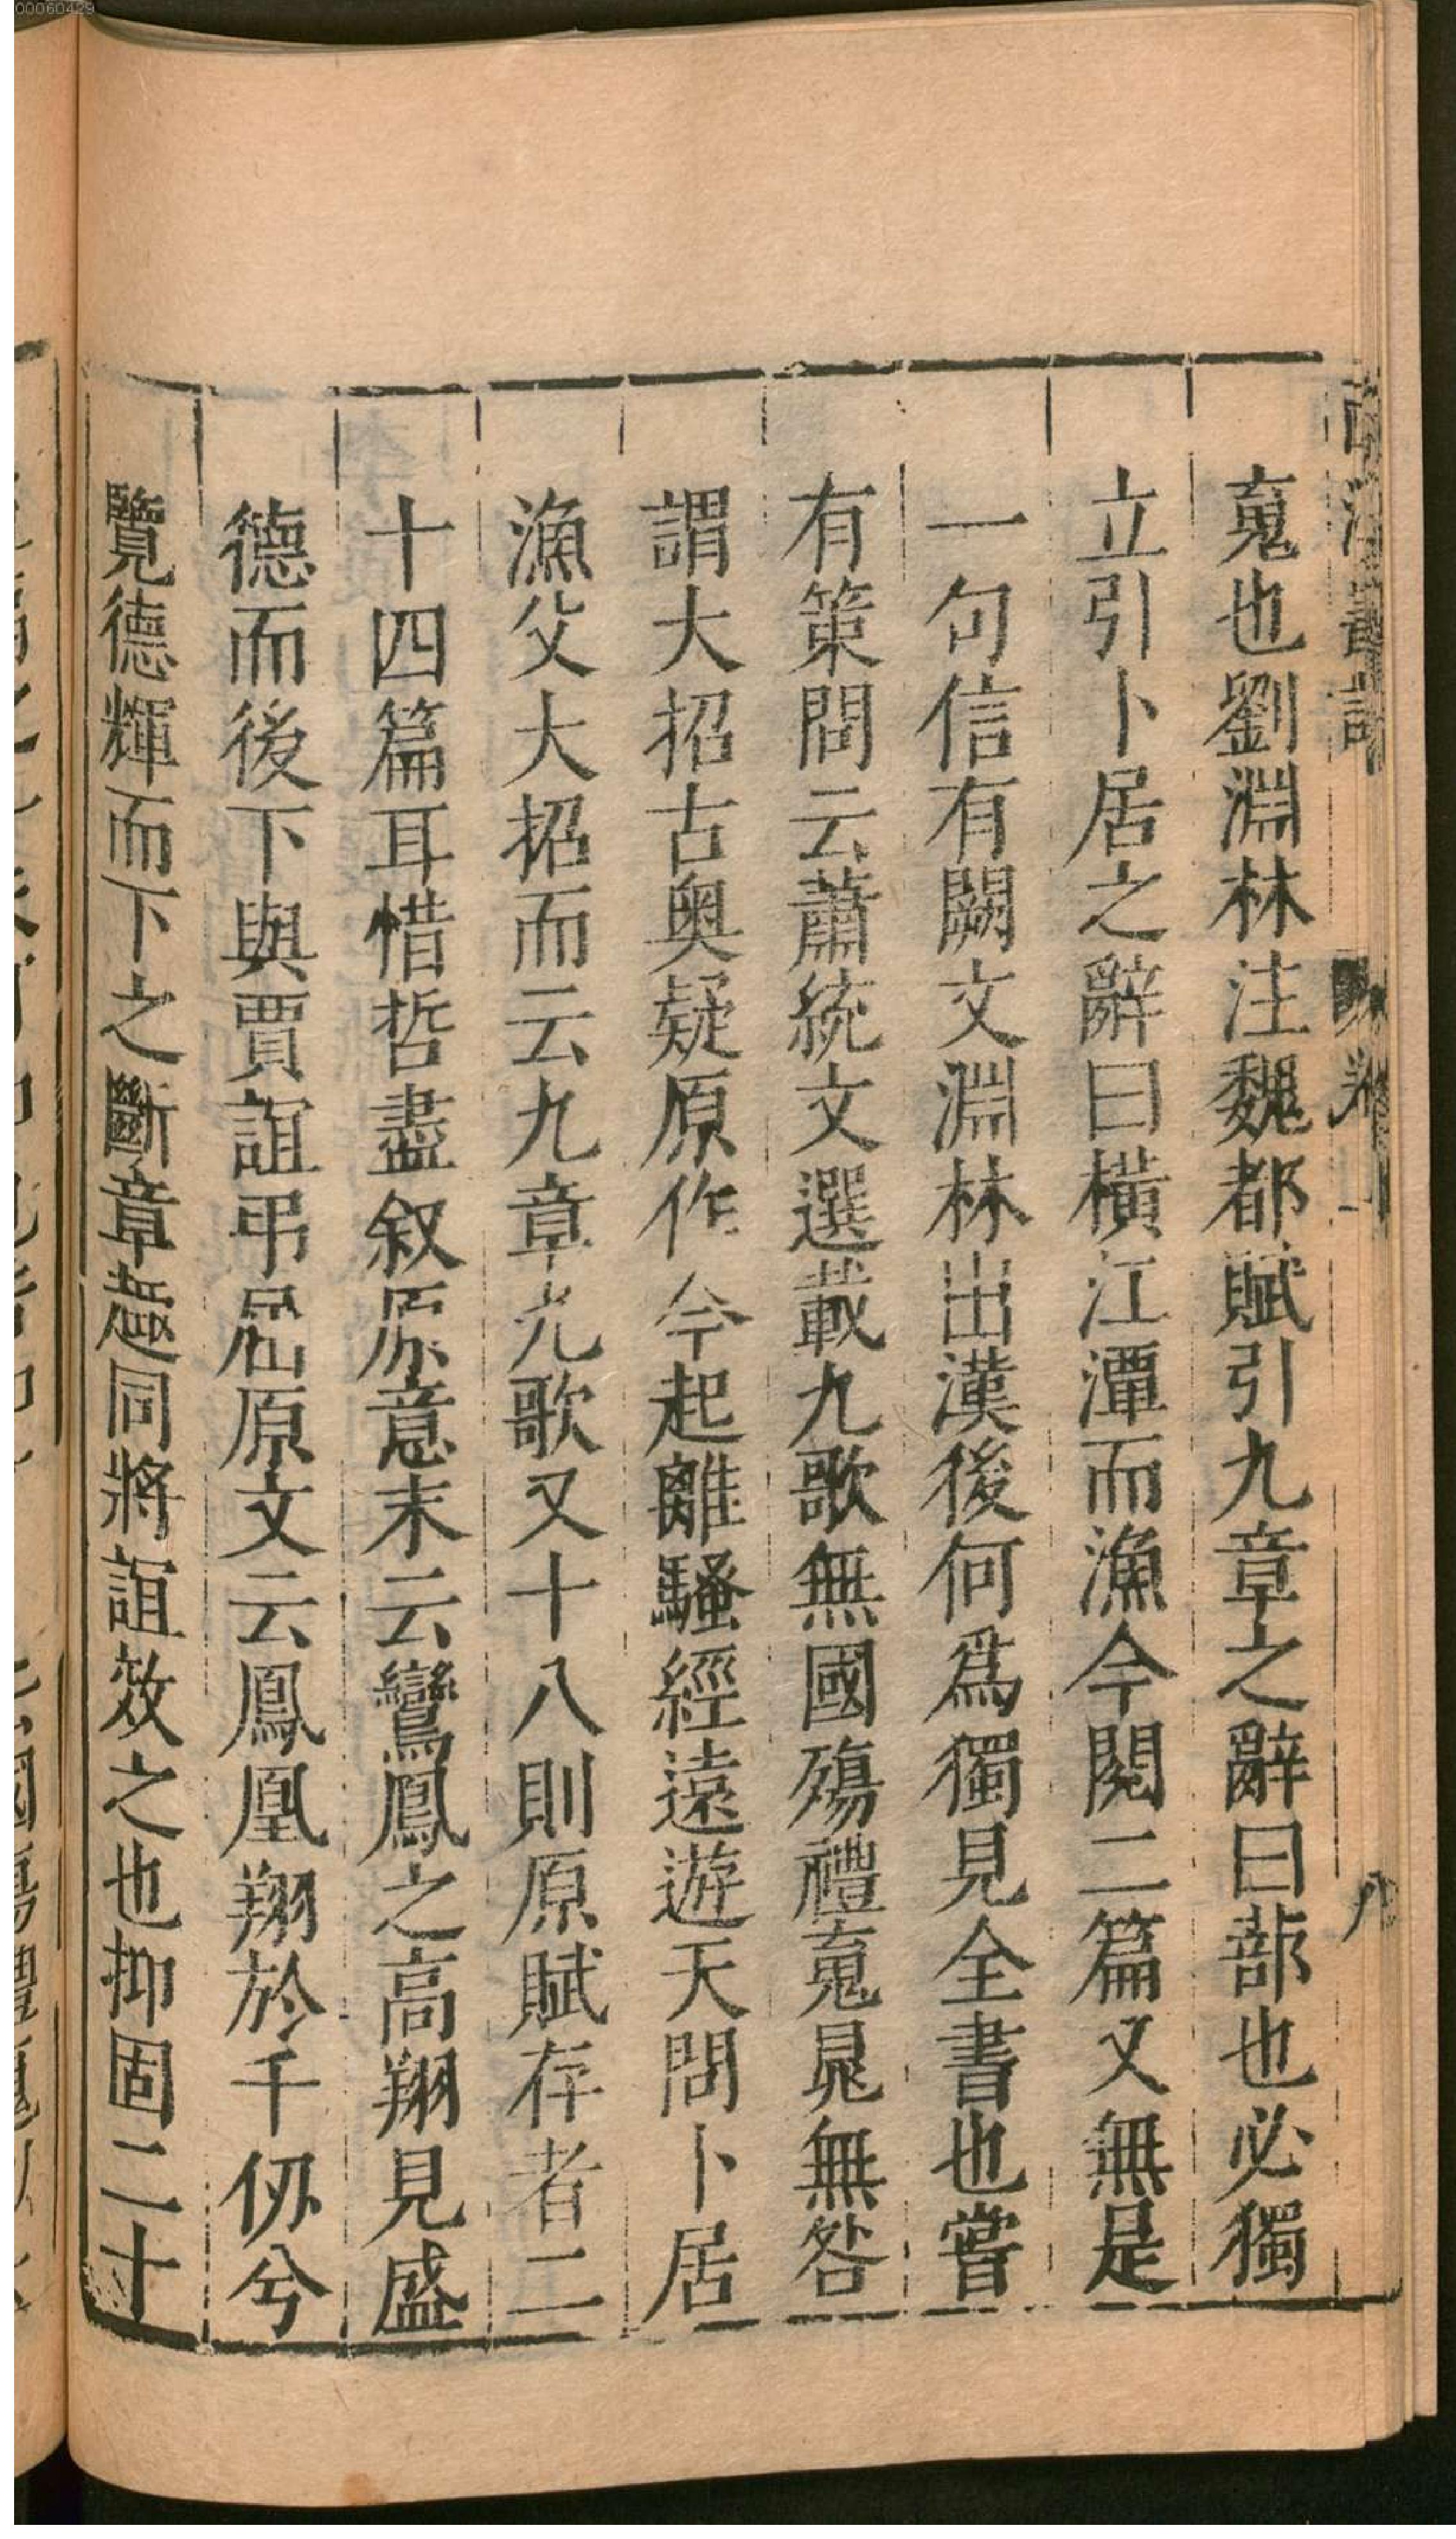 00060429
䰟也劉淵林注魏都賦引九章之辭曰蔀也必獨
立引卜居之辭曰橫江潭而漁今閱二篇又無是
一句信有闕文淵林出漢後何爲獨見全書也嘗
有策問云蕭統文選載九歌無國殤禮䰟晁無咎
謂大招古奥疑原作今起離騷經遠遊天問卜居
漁父大招而云九章九歌又十八則原賦存者二
十四篇耳惜哲盡叙原意末云鸞鳳之高翔見盛
德而後下與賈誼弔屈原文云鳳凰翔於千仞兮
覽德輝而下之斷章趣同將誼效之也抑固二十